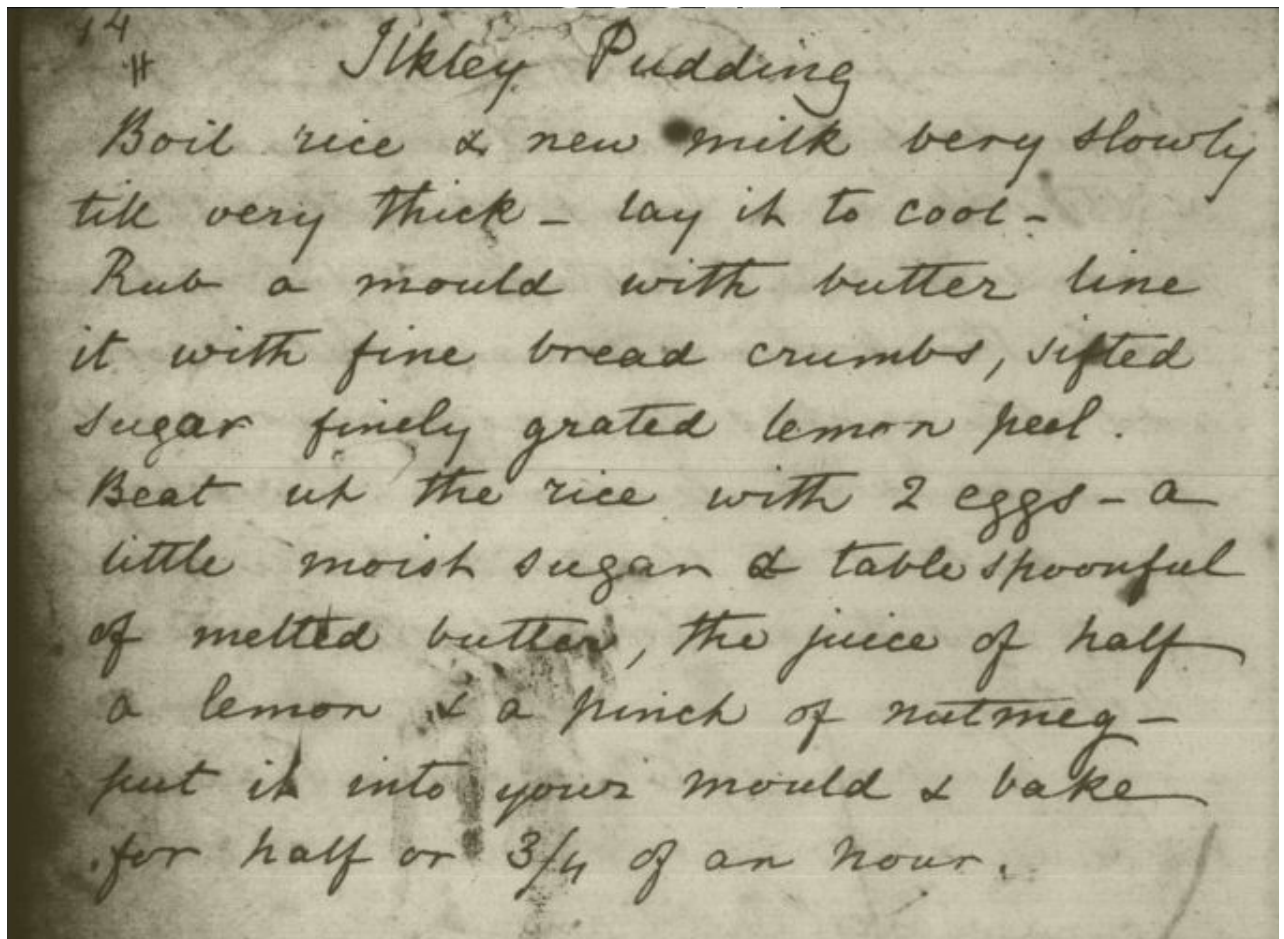 14
Ilkley Pudding
Boil rice & new milk very slowly
till very thick - lay it to cool -
Rub a mould with butter line
it with fine bread crumbs, sifted
sugar finely grated lemon peel.
Beat up the rice with 2 eggs - a
little moist sugar & tablespoonful
of melted butter, the juice of half
a lemon & a pinch of nutmeg -
put it into your mould & bake
for half or 3/4 of an hour.